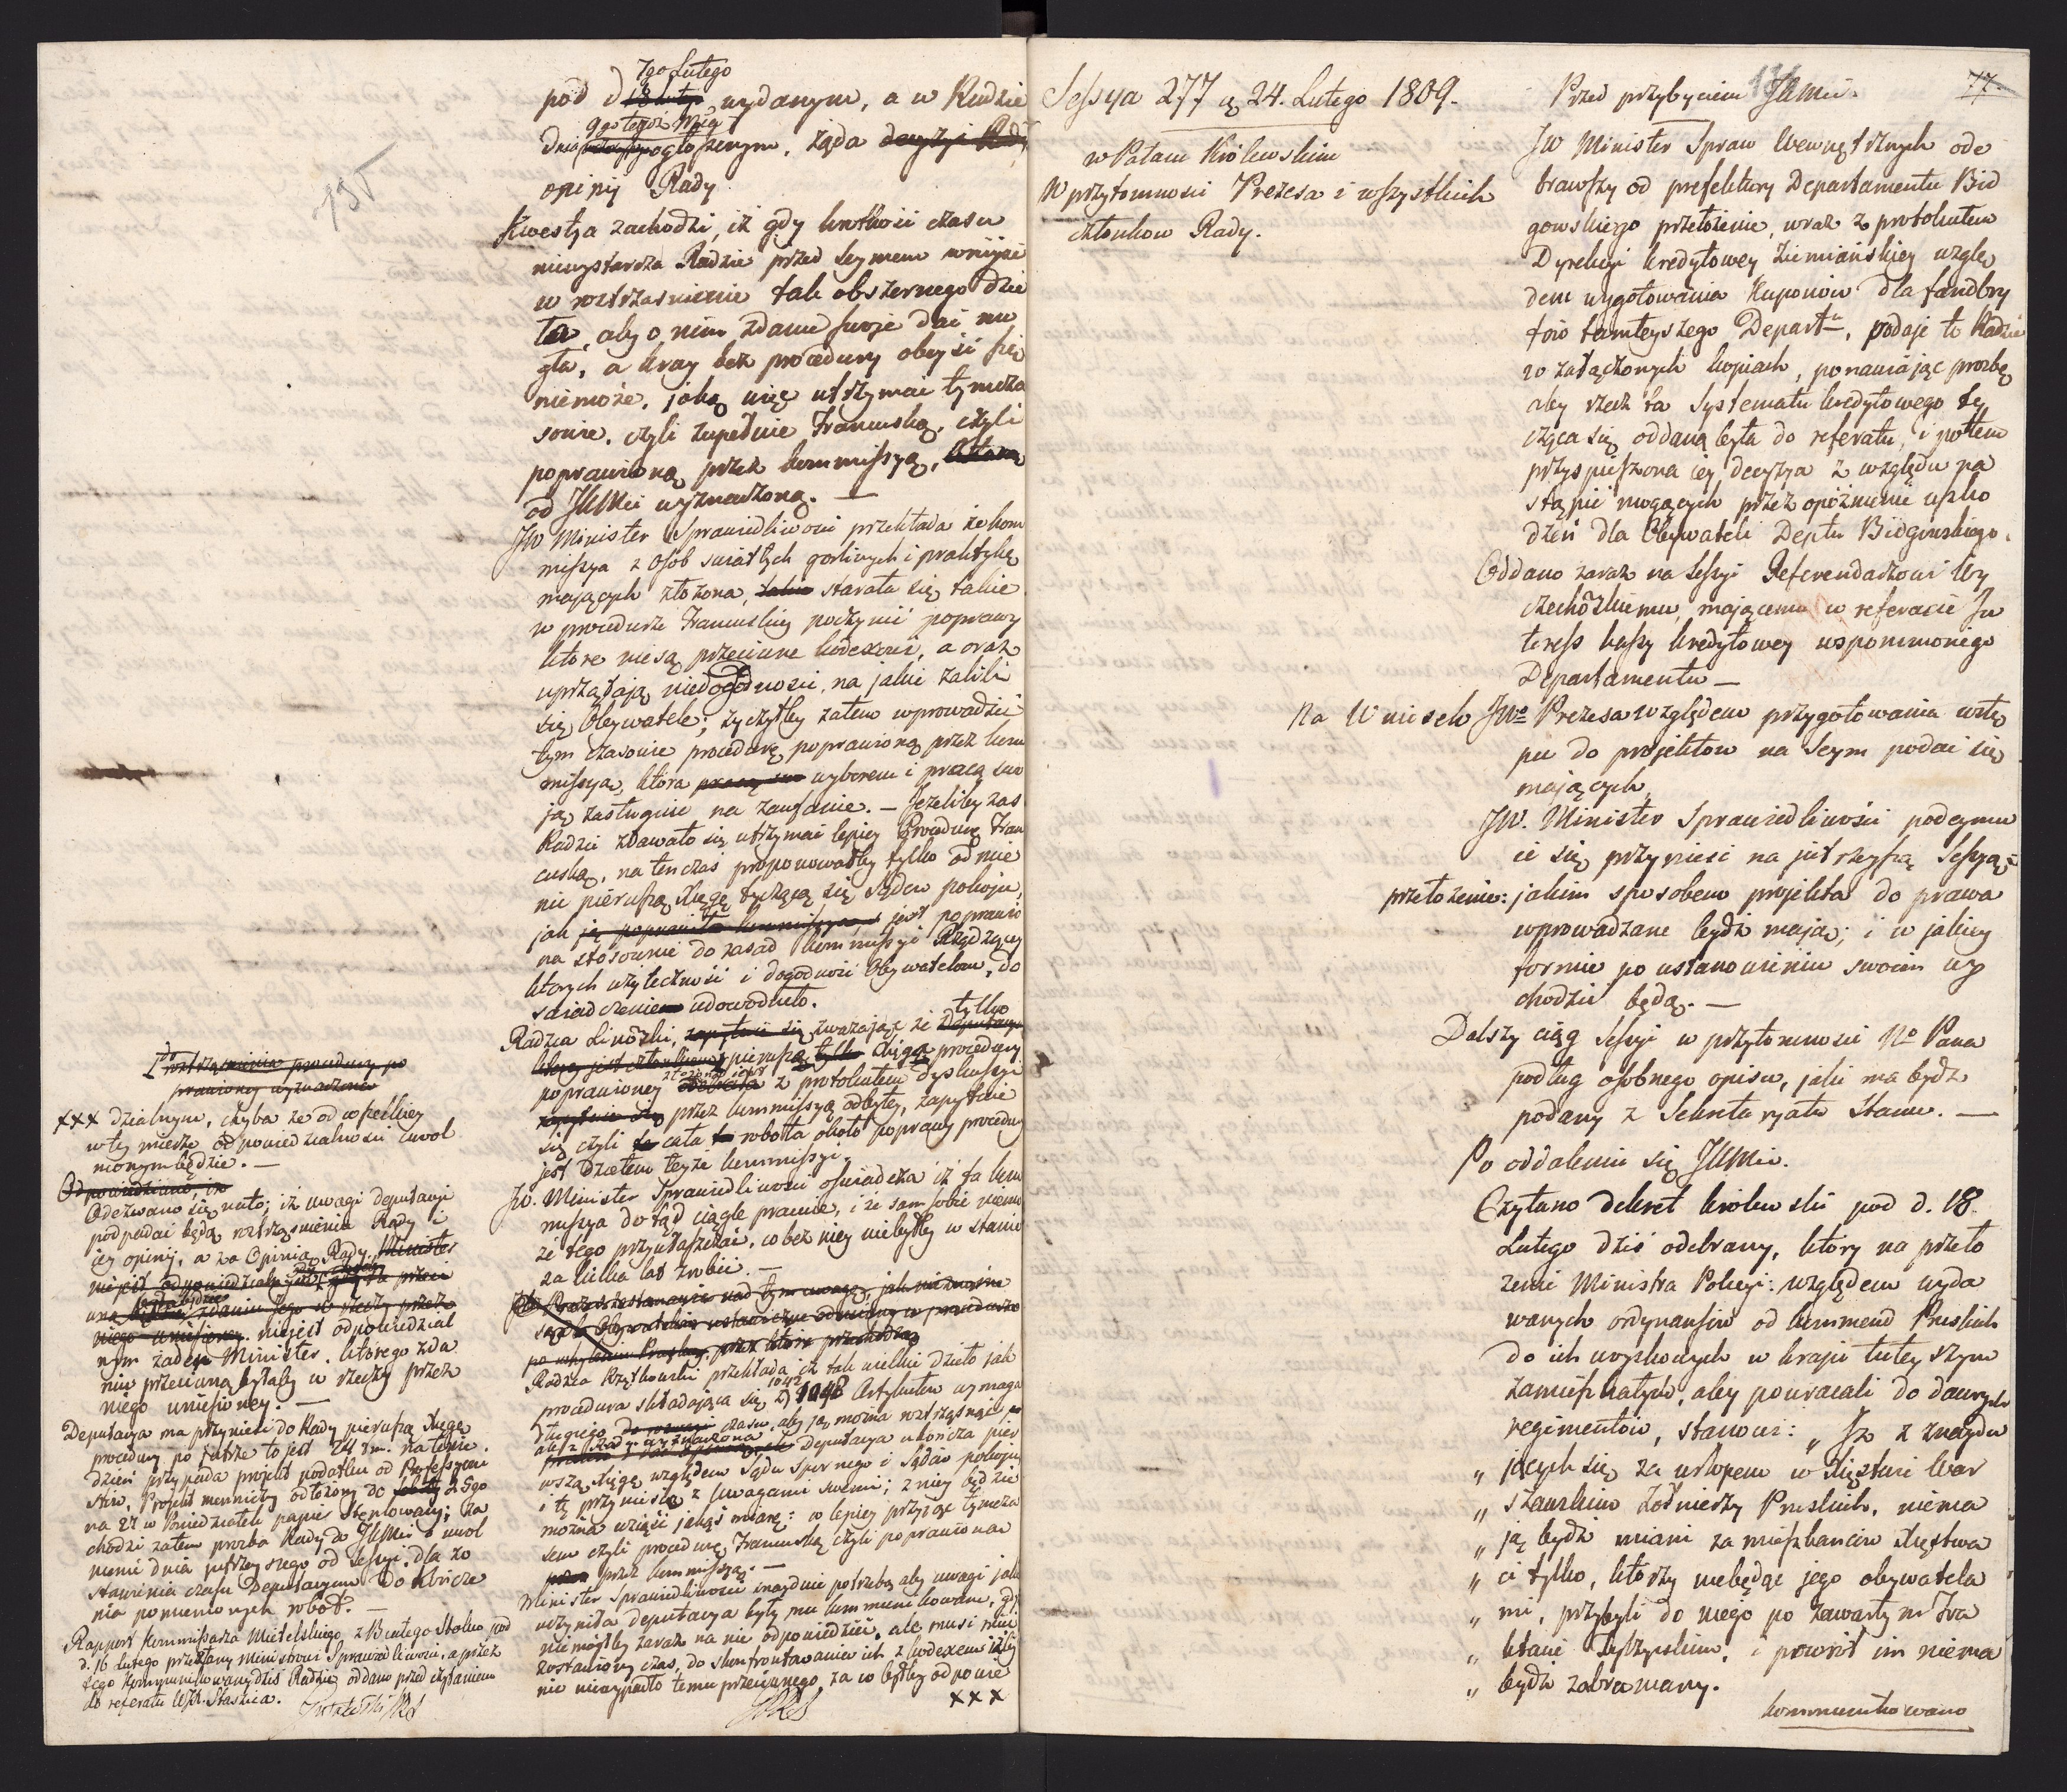 7go Lutego
pod d 18 Lutego wydanym, a w Radzie
9go tegoż Mca
Dnia ogłoszonym, żąda decyzyi Rady
opinij Rady
135
Kwestya zachodzi, iż gdy krotkość czasu
niewystarcza Radzie przed Seymem wniyść
w roztrząsnienie tak obszernego dzie
ła, aby o nim zdanie swoje dać mo
gła, a kray bez procedury obeyść się
niemoże, jaką więc utrzymać tymcza
sowie, czyli zupełnie Francuską, czyli
poprawioną przez kommissyą,
od JKMci wyznaczoną. —
JW Minister Sprawiedliwości przekłada że kom
missya z osob swiatłych gorliwych i praktykę
mających złożona, takie starała się takie
w procedurze Francuskiey poczynić poprawy
ktore niesą przeciwne kodexowi, a oraz
uprzątają niedogodnosci, na jakie żalili
się Obywatele; życzyłby zatem wprowadzić
tymczasowie procedurę poprawioną przez kom
missyą, ktora pracą swo wyborem i pracą swo
ją zasługuie na zaufanie. — Jeżeliby zas
Radzie zdawało się utrzymać lepiey Procedurę Fran
cuską, na tenczas proponowałby tylko odmie
nić pierwszą xięgę tyczącą się sądow pokoju,
jak ją poprawiła kommissya, jest poprawio
na stosownie do zasad kommissyi Rządzącey
ktorych użyteczność i dogodność Obywatelom, do
swiadczenie udowodniło.
tylko
Radzca Linoski, zapytuie się zważając że Deputacyi
ktorey jest członkiem pierwszą tylko xięga procedury
złożoną jest
poprawioney z protokułem dyskussyi
zapytuie się przez kommissyą odbytey, zapytuie
się czyli ta cała ta robotta około poprawy procedury
jest dziełem teyże kommissyi.
JW. Minister Sprawiedliwości oświadcza iż ta kom
missya dotąd ciągle pracuie, i że sam sobie niemo
że tego przywłaszczać, co bez niey niebyłby w stanie
za kilka lat zrobić. —
Radzca zastanawia nad tym uwagę, jak nieznośna
są dla Obywatelow ustawiczne odmiany w procedurze
po uchyleniu Pruskiey przez ktore przechodzą
Radzca Krzętkowski przekłada iż tak wielkie dzieło jak
1042
procedura składająca się z 1048 Artykułow wymaga
długiego do rozwagi czasu, aby ją można roztrząsnąć po
ale z Rady wyznaczona
Deputacya ukończa pier
wszą xięgę względem sądu spornego i sądow pokoju,
i tę przyniesie z uwagami swemi; z niey będzie
można wziąść jakąś miarę: co lepiey przyjąć tymcza
sem czyli procedurę Francuską czyli poprawioną
przez kommissyą. —
Minister Sprawiedliwości znayduie potrzebę aby uwagi jakie
uczyniła deputacya były mu kommunikowane, gdy
niemógłby zaraz na nie odpowiedzieć, ale musi mieć
zostawiony czas, do skonfrontowania ich z kodexem iżby
nic niewypadło temu przeciwnego, za co byłby odpowie
xxx
Do roztrząśnienia procedury po
prawioney wyznaczona
xxx dzialnym, chyba że od wszelkiey
w tey mierze odpowiedzialności uwol
nionym będzie. —
Odpowiedziano, iż
Odezwano się na to; iż uwagi Deputacyi
podpadać będą roztrząśnieniu Rady i
jey opinij, a za Opinią Rady Minister
niejest odpowiedzialny
niego wniesioney. niejest odpowiedzial
nym żaden Minister, ktorego zda
nie przeciwną byłaby w rzeczy przez
niego wniesioney. —
Deputacya ma przynieść do Rady pierwszą xięgę
procedury po jutrze to jest 24 t. m. na tenże
dzień przypada projekt podatku od Professyoni
stow. Projekt menniczy odłożony do soboty 25go
na 27 w Poniedziałek papier stęplowany; za
chodzi zatem prozba Rady do JKMci o uwol
nienie dnia jutrzeyszego od Sessyi. dla zo
stawienia czasu Deputacyom do skończe
nia pomienionych robot. —
Rapport Kommissarza Mielelskiego z Bentego Stolno pod
d. 16 lutego przesłany Ministrowi Sprawiedliwości, a przez
tego kommunikowany dziś Radzie oddano przed czytaniem
do referatu WR. Stasica.
Sessya 277 d. 24. Lutego 1809.
w Pałacu Krolewskim
W przytomnosci Prezesa i wszystkich
członkow Rady.
77.
Przed przybyciem JKMci.
JW Minister Spraw Wewnętrznych ode
brawszy od prefektury Departamentu Bid
gowskiego przełożenie, wraz z protokułem
Dyrekcyi kredytowey Ziemiańskiey wzglę
dem wygotowania Kuponow dla fandbry
fow tamteyszego Departu, podaje to Radzie
w załączonych kopiach, ponawiając prozbę
aby rzecz ta Systematu kredytowego ty
cząca się oddaną była do referatu, i potem
przyspieszona jey decyzya z względu na
stąpić mogących przez opóźnienie uszko
dzeń dla Obywateli Deptu Bidgoskiego.
Oddano zaraz na Sessyi Referendarzowi Wy
czechowskiemu, mającemu w referacie In
teress kassy kredytowey wspomnionego
Departamentu —
Na Wniosek JWo Prezesa względem przygotowania wstę
pu do projektow na Seym podać się
mających,
JW. Minister Sprawiedliwości podeymu
ie się przynieść na jutrzeyszą Sessyą
przełożenie: jakim sposobem projekta do prawa
wprowadzane bydź mają; i w jakiey
formie po ustanowieniu swoim wy
chodzić będą. —
Dalszy ciąg Sessyi w przytomnosci No Pana
podług osobnego opisu, jaki ma bydź
podany z Sekretaryatu Stanu. —
Po oddaleniu się JKMci.
Czytano Dekret krolewski pod d. 18.
Lutego dziś odebrany, ktory na przeło
żenie Ministra Policyi: względem wyda
wanych ordynansow od kommend Pruskich
do ich wysłużonych w kraju tuteyszym
zamieszkałych, aby powracali do dawnych
regimentow, stanowi: „Iż z znaydu
„ jących się za urlopem w Xięstwie War
„ szawskim żołnierzy Pruskich, niema
„ ją bydź miani za mieszkańcow Xięstwa
„ ci tylko, ktorzy niebędąc jego obywatela
„ mi, przybyli do niego po zawartym Tra
„ ktacie Tylżyckim, i powrót im niema
„ bydź zabroniony.
kommunikowano